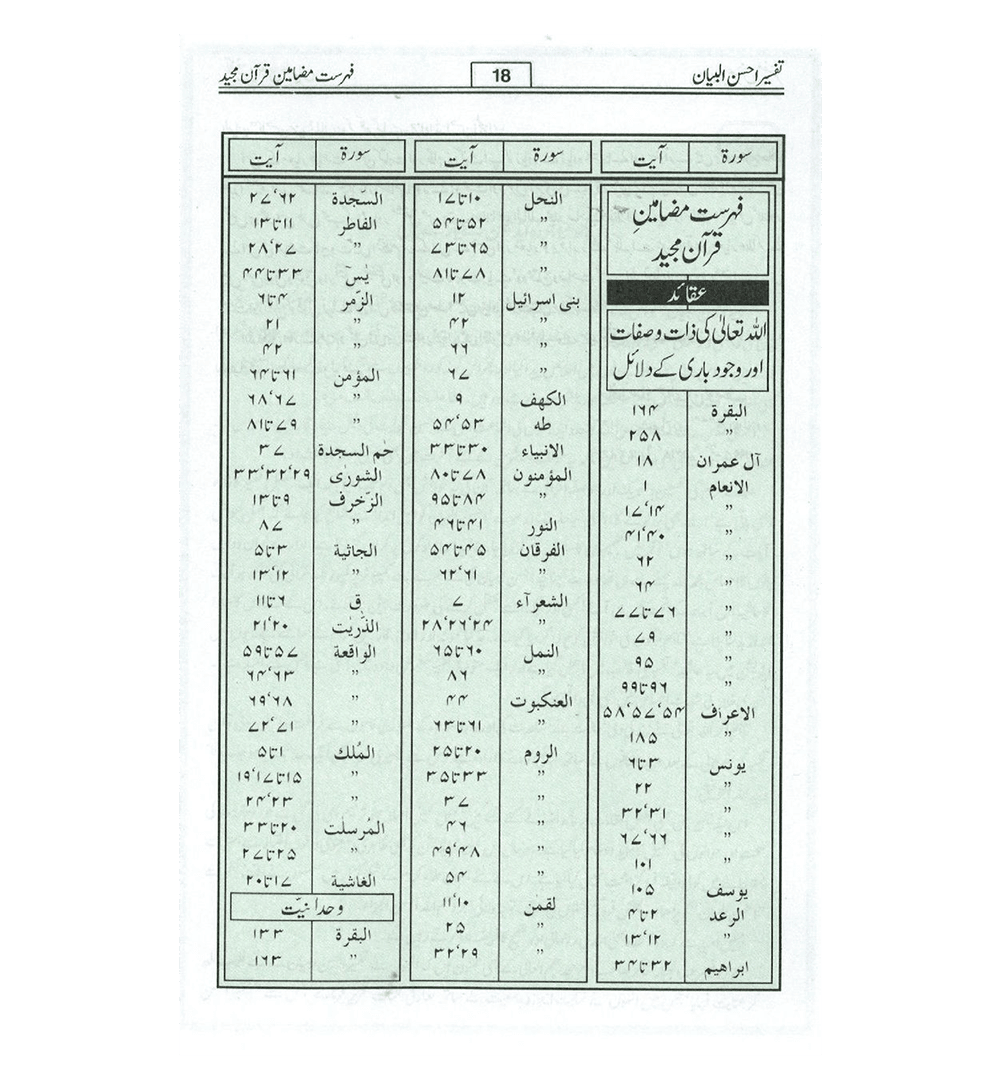 تفسیر احسن البیان
18
فہرست مضامین قرآن مجید
سورۃ آیت سورۃ آیت سورۃ آیت
فہرست مضامینِ
قرآن مجید
عقائد
اللہ تعالیٰ کی ذات وصفات
اور وجود باری کے دلائل
البقرة ۱۶۴
” ۲۵۸
آل عمران ۱۸
الانعام ۱
” ۱۷٬۱۴
” ۴۱٬۴۰
” ۶۲
” ۶۴
” ۷۶تا۷۷
” ۷۹
” ۹۵
” ۹۶تا۹۹
الاعراف ۵۸٬۵۷٬۵۴
” ۱۸۵
یونس ۳تا۶
” ۲۲
” ۳۲٬۳۱
” ۶۷٬۶۶
” ۱۰۱
یوسف ۱۰۵
الرعد ۲تا۴
” ۱۳٬۱۲
ابراهیم ۳۲تا۳۴
النحل ۱۰تا۱۷
” ۵۲تا۵۴
” ۶۵تا۷۳
” ۷۸تا۸۱
بنی اسرائیل ۱۲
” ۴۲
” ۶۶
” ۶۷
الکهف ۹
طه ۵۴٬۵۳
الانبیاء ۳۰تا۳۳
المؤمنون ۷۸تا۸۰
” ۸۴تا۹۵
النور ۴۱تا۴۶
الفرقان ۴۵تا۵۴
” ۶۲٬۶۱
الشعرآء ۷
” ۲۸٬۲۶٬۲۴
النمل ۶۰تا۶۵
” ۸۶
العنکبوت ۴۴
” ۶۱تا۶۳
الروم ۲۰تا۲۵
” ۳۳تا۳۵
” ۳۷
” ۴۶
” ۴۹٬۴۸
” ۵۴
لقمٰن ۱۱٬۱۰
” ۲۵
” ۳۲٬۲۹
السجدة ۲۷٬۶۲
الفاطر ۱۱تا۱۳
” ۲۸٬۲۷
یٰسٓ ۳۳تا۴۴
الزّمر ۴تا۶
” ۲۱
” ۴۲
المؤمن ۶۱تا۶۴
” ۶۸٬۶۷
” ۷۹تا۸۱
حٰم السجدة ۳۷
الشورٰی ۳۳٬۳۲٬۲۹
الزّخرف ۹تا۱۳
” ۸۷
الجاثیة ۳تا۵
” ۱۳٬۱۲
ق ۶تا۱۱
الذّٰریٰت ۲۱٬۲۰
الواقعة ۵۷تا۵۹
” ۶۴٬۶۳
” ۶۹٬۶۸
” ۷۲٬۷۱
المُلک ۱تا۵
” ۱۵تا۱۹٬۱۷
” ۲۴٬۲۳
المُرسلٰت ۲۰تا۳۳
” ۲۵تا۲۷
الغاشیة ۱۷تا۲۰
وحدانیّت
البقرة ۱۳۳
” ۱۶۳